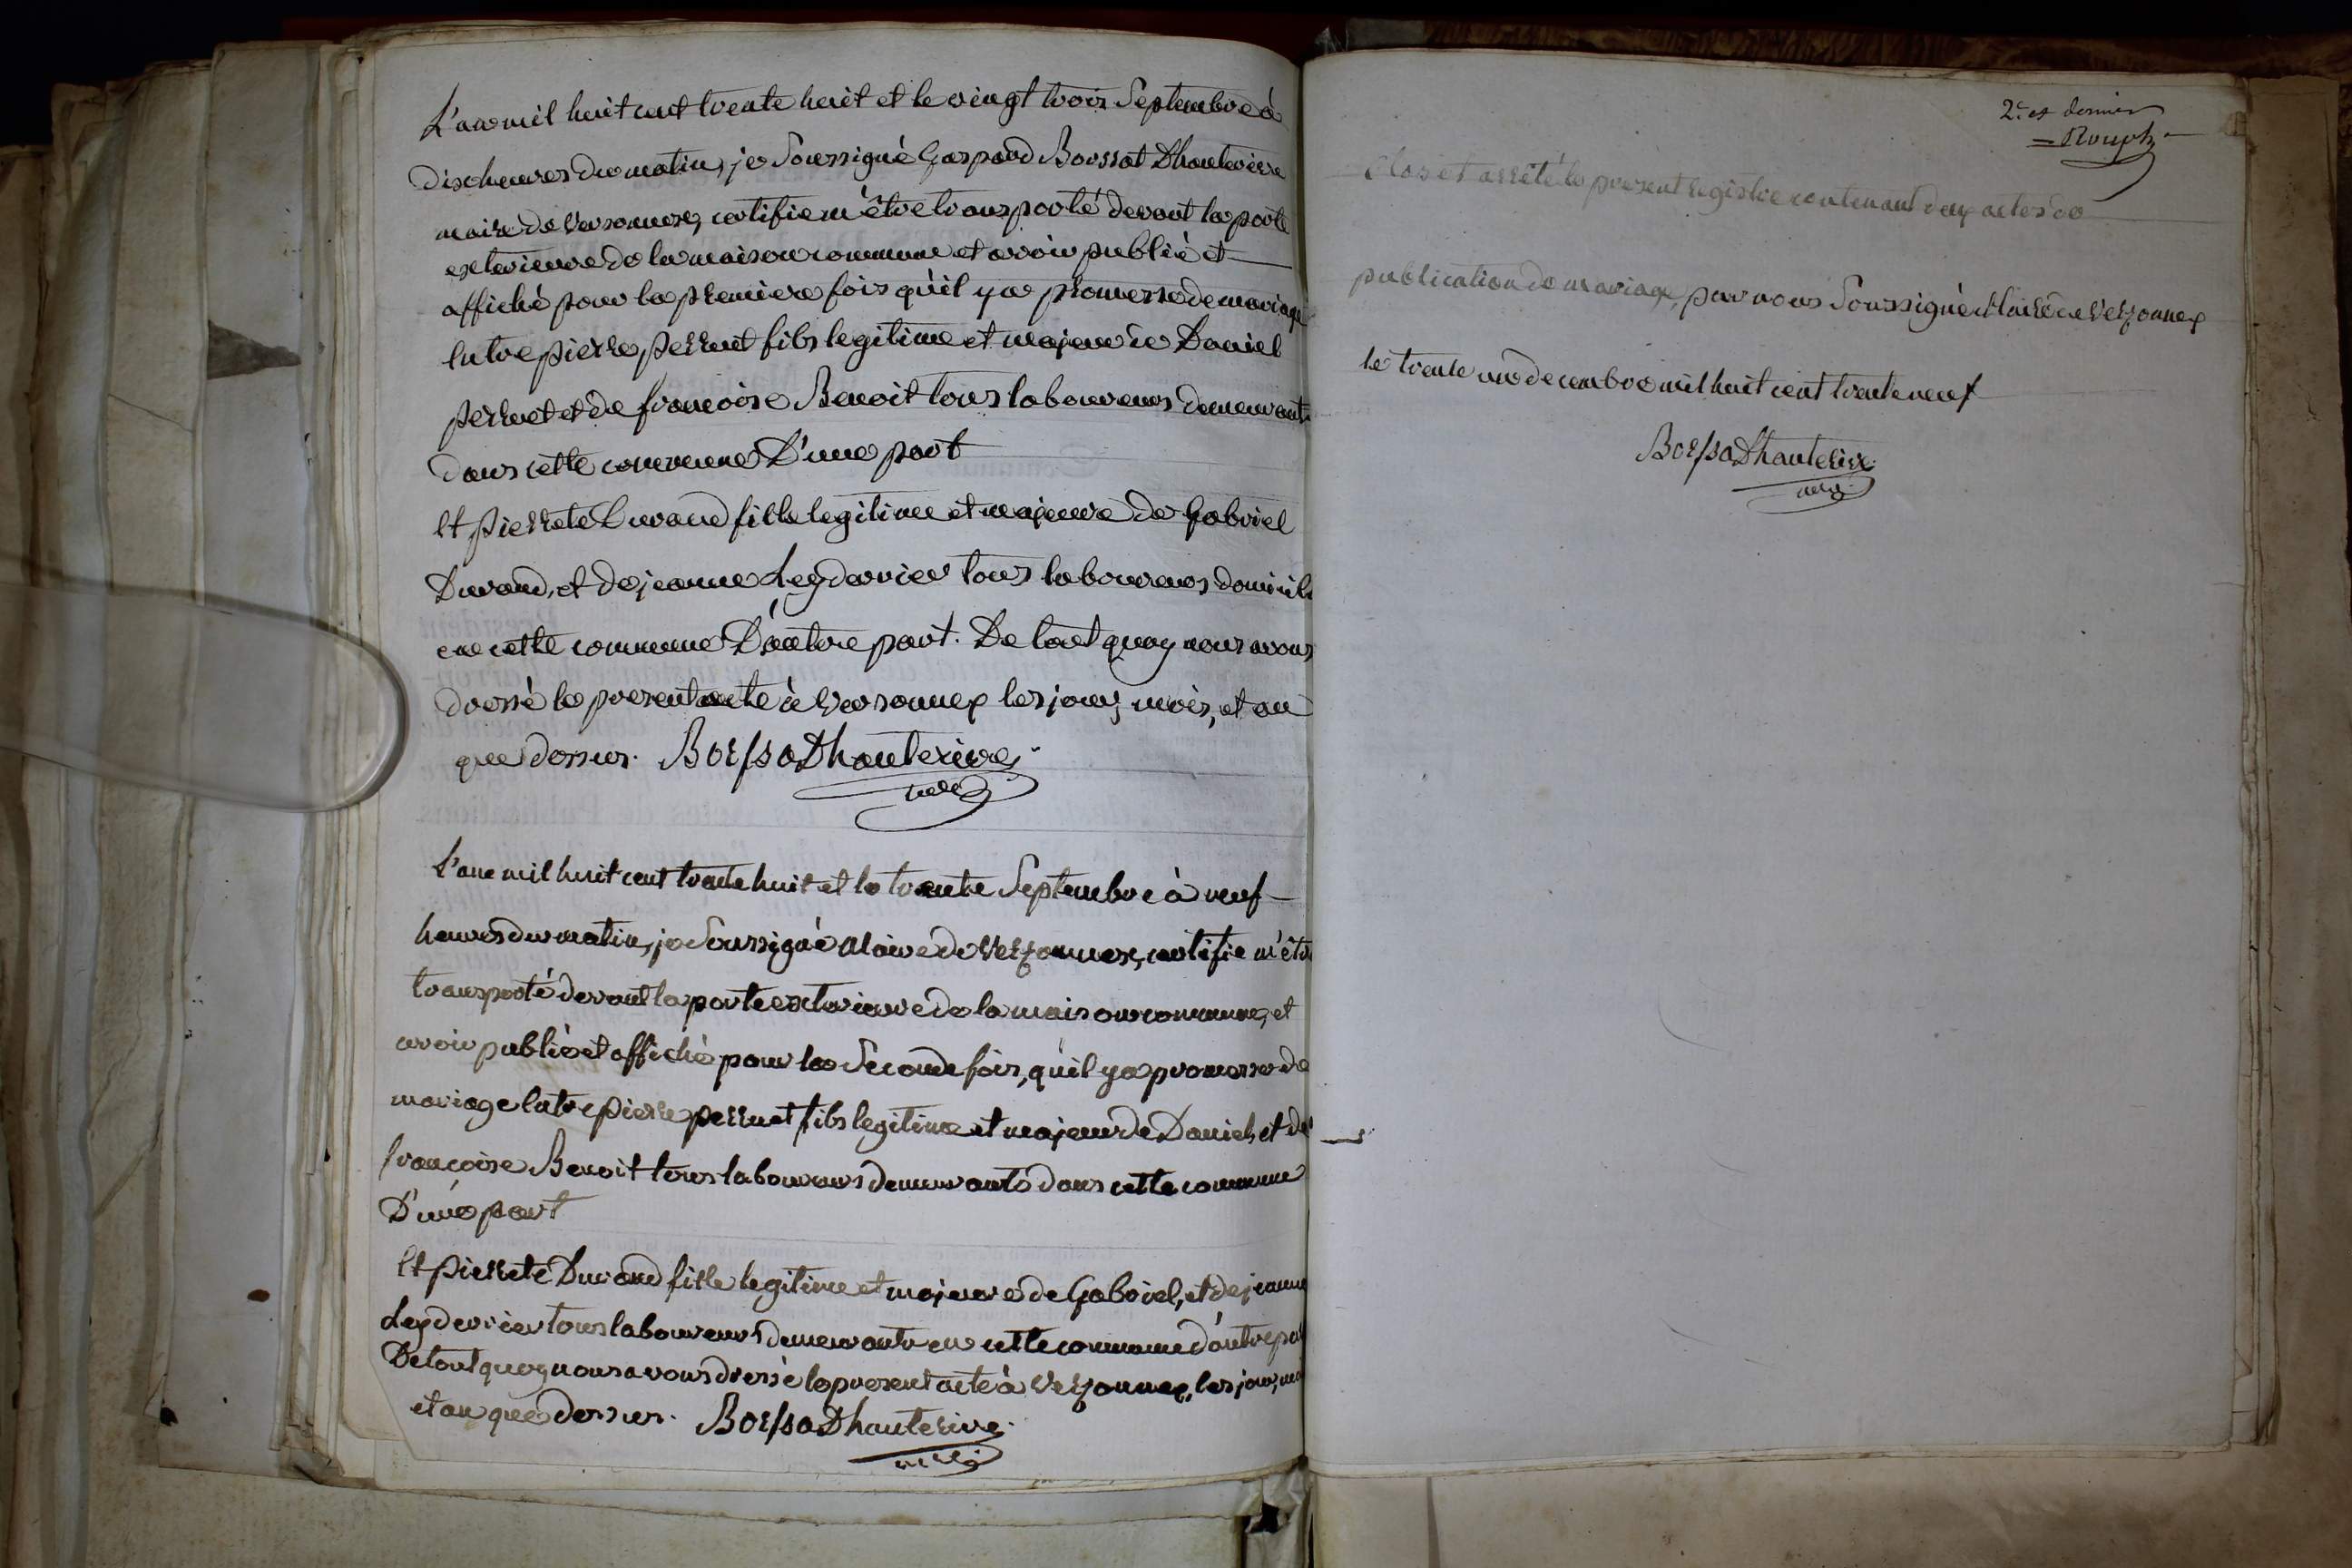 L'an mil huit cent trente huit et le vingt trois Septembre à
dix heures du matin, je Soussigné Gaspard Boussat Dhauterive
maire de Versonnex, certifie m'être transporté devant la porte
exterieure de la maison commune et avoir publié et
affiché pour la premiere fois qu'il y a promesse de mariage
Entre pierre perruet fils legitime et majeur de Daniel
perruet et de françoise Benoit tous laboureurs demeurants
dans cette commune D'une part
Et pierrete Durand fille legitime et majeure de Gabriel
Durand, et de jeanne Leydervier tous laboureurs domicil
en cette commune D'autre part. De tout quoy nous avons
dressé le present acte à Versonnex les jour, mois, et an
que dessus. Boussa Dhauterive
L'an mil huit cent trente huit et le trente Septembre à neuf
heures du matin, je Soussigné Maire de Verzonnex, certifie m'être
transporté devant la porte exterieure de la maison commune, et
avoir publié et affiché pour la Seconde fois, qu'il y a promesse de
mariage Entre pierre perruet fils legitime et majeur de Daniel, et de
françoise Benoit tous laboureurs demeurants dans cette commune
D'une part
Et pierrete Durand fille legitime et majeure de Gabriel, et de jeanne
Leydervier tous laboureurs demeurants en cette commune d'autre par
De tout quoy nous avons dressé le present acte à Verzonnex, les jour, moi
et an que dessus. Boussa Dhauterive
2e et dernier
Clos et arrêté le present registre contenant deux actes de
publication de mariage, par nous Soussigné Maire de Verzonnex
le trente un decembre mil huit cent trente neuf
Boussa Dhauterive